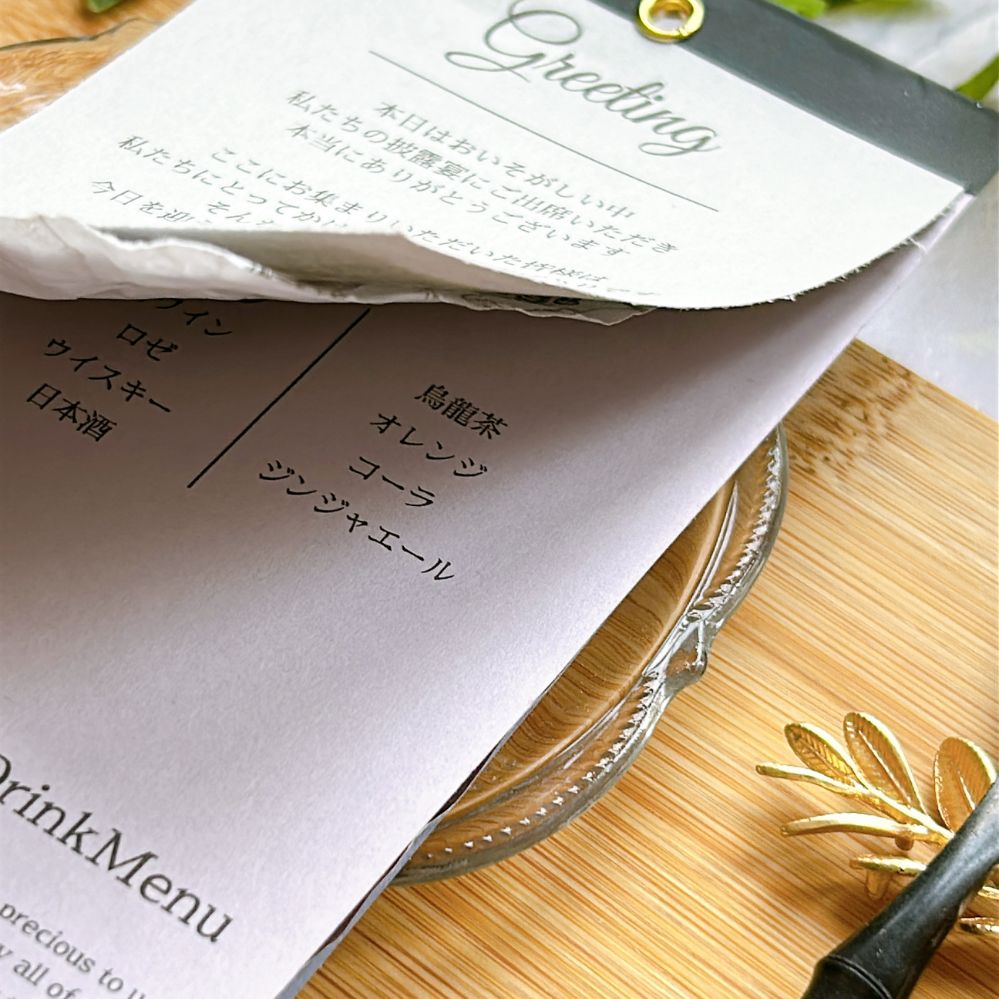 Greeting
本日はおいそがしい中
私たちの披露宴にご出席いただき
本当にありがとうございます
ここにお集まりいただいた皆様は
私たちにとってか
そんな
今日を迎
イン
ロゼ
ウイスキー
日本酒
烏龍茶
オレンジ
コーラ
ジンジャエール
DrinkMenu
precious to
all of